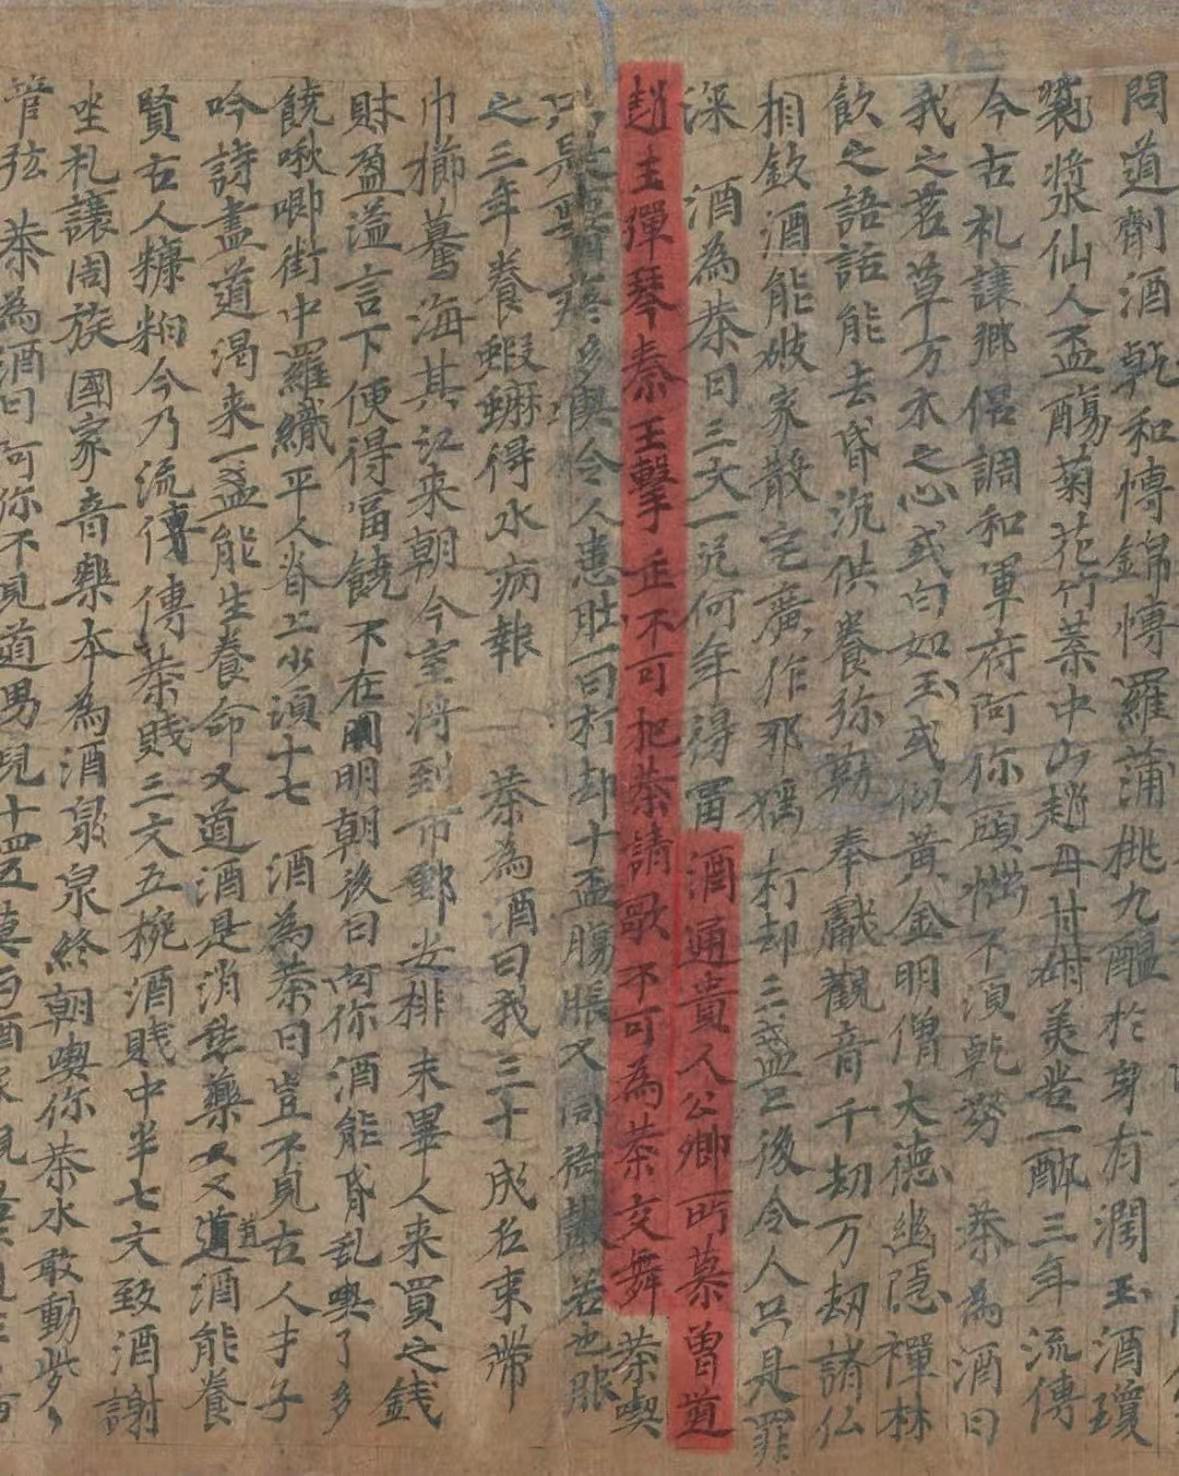 問道劑酒乹和博錦博羅蒲桃九醖扵身有潤玉酒瓊
漿仙人盃觴菊花竹葉中山趙母甘甜美苦一醉三年流傳
今古礼讓鄉侶調和軍府阿你頭惱不湏乹努 茶為酒曰
我之茗草万木之心或白如玉或似黃金明僧大德幽隱禪林
飲之語話能去昏沉供養弥勒奉獻觀音千劫万劫諸仏
相欽酒能破家散宅廣作邪 打却三盞已後令人只是罪
深 酒為茶曰三文一 何年得冨酒通貴人公卿所慕曾道
趙主彈琴秦王擊缶不可把茶請歌不可為茶交舞茶喫
只是 多喫令人患肚一日打却十盃膓脹又同衙 若也服
之三年養蝦 得水病報 茶為酒曰我三十成名束帶
巾櫛驀海其江来朝今室将到市 安排未畢人来買之錢
財盈溢言下便得冨饒不在明朝後日阿你酒能昏乱喫了多
饒啾唧街中羅織平人脊上少湏十七 酒為茶曰豈不見古人才子
吟詩盡道渴来一盞能生養命又道酒是消愁藥又道酒能養
賢古人糠粕今乃流傳茶賤三文五椀酒賤中半七文致酒謝
坐礼讓周旋國家音樂本為酒泉終朝喫你茶水敢動些々
管弦 茶為酒曰阿你不見道男兒十四五莫与酒家親